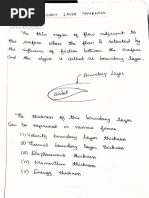 LAYER THICKNESS
The thin region of flow adjacent to
the surface where the flow is retarded by
the influence of friction between the surface
and the object is called as boundary layer.
Boundary layer
Solid
The thickness of this boundary layer
Can be expressed in various forms.
(i) Velocity boundary layer thickness
(ii) Thermal boundary layer thickness
(iii) Displacement thickness
(iv) Momentum thickness
(v) Energy thickness.